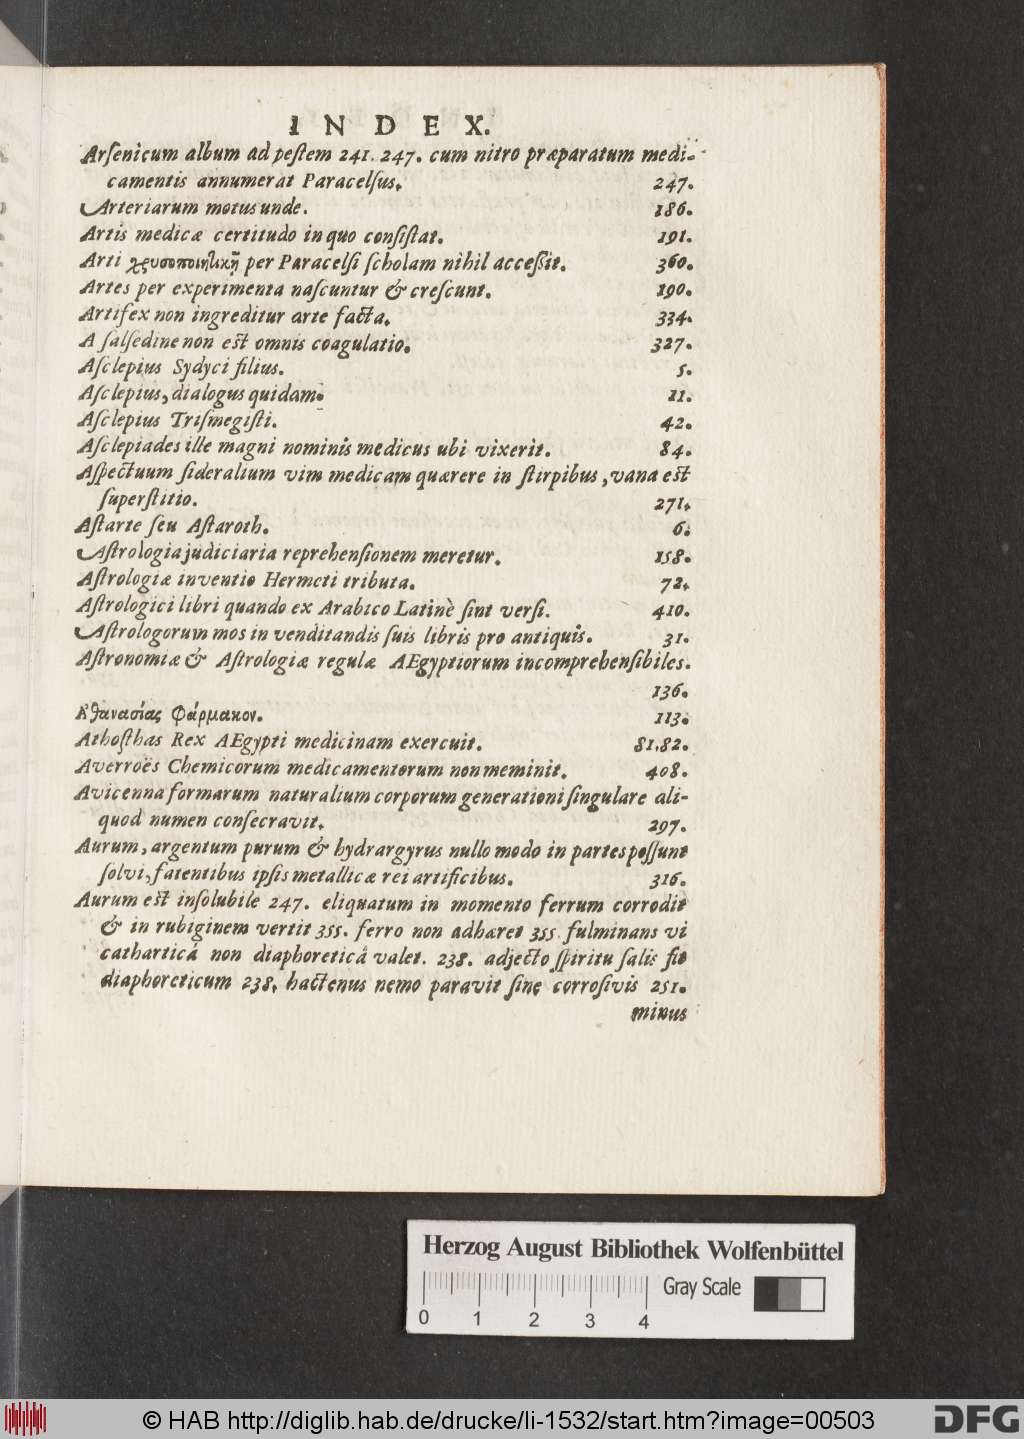 INDEX.
Arſenicum album ad peſtem 241. 247. cum nitro præparatum medi-
camentis annumerat Paracelſus. 247.
Arteriarum motus unde. 186.
Artis medicæ certitudo in quo conſiſtat. 191.
Arti χρυσοποιητικῇ per Paracelſi ſcholam nihil acceſſit. 360.
Artes per experimenta naſcuntur & creſcunt. 190.
Artifex non ingreditur arte facta. 334.
A ſalſedine non eſt omnis coagulatio. 327.
Aſclepius Sydyci filius. 5.
Aſclepius, dialogus quidam. 11.
Aſclepius Triſmegiſti. 42.
Aſclepiades ille magni nominis medicus ubi vixerit. 84.
Aſpectuum ſideralium vim medicam quærere in ſtirpibus, vana eſt
ſuperſtitio. 271.
Aſtarte ſeu Aſtaroth. 6.
Aſtrologia judiciaria reprehenſionem meretur. 158.
Aſtrologiæ inventio Hermeti tributa. 72.
Aſtrologici libri quando ex Arabico Latinè ſint verſi. 410.
Aſtrologorum mos in venditandis ſuis libris pro antiquis. 31.
Aſtronomiæ & Aſtrologiæ regulæ AEgyptiorum incomprehenſibiles.
136.
Ἀθανασίας Φάρμακον. 113.
Athoſthas Rex AEgypti medicinam exercuit. 81.82.
Averroës Chemicorum medicamentorum non meminit. 408.
Avicenna formarum naturalium corporum generationi ſingulare ali-
quod numen conſecravit. 297.
Aurum, argentum purum & hydrargyrus nullo modo in partes poſſunt
ſolvi, fatentibus ipſis metallicæ rei artificibus. 316.
Aurum eſt inſolubile 247. eliquatum in momento ferrum corrodit
& in rubiginem vertit 355. ferro non adhæret 355. fulminans vi
catharticâ non diaphoreticâ valet. 238. adjecto ſpiritu ſalis fit
diaphoreticum 238. hactenus nemo paravit ſine corroſivis 251.
minus
Herzog August Bibliothek Wolfenbüttel
Gray Scale
0 1 2 3 4
© HAB http://diglib.hab.de/drucke/li-1532/start.htm?image=00503
DFG